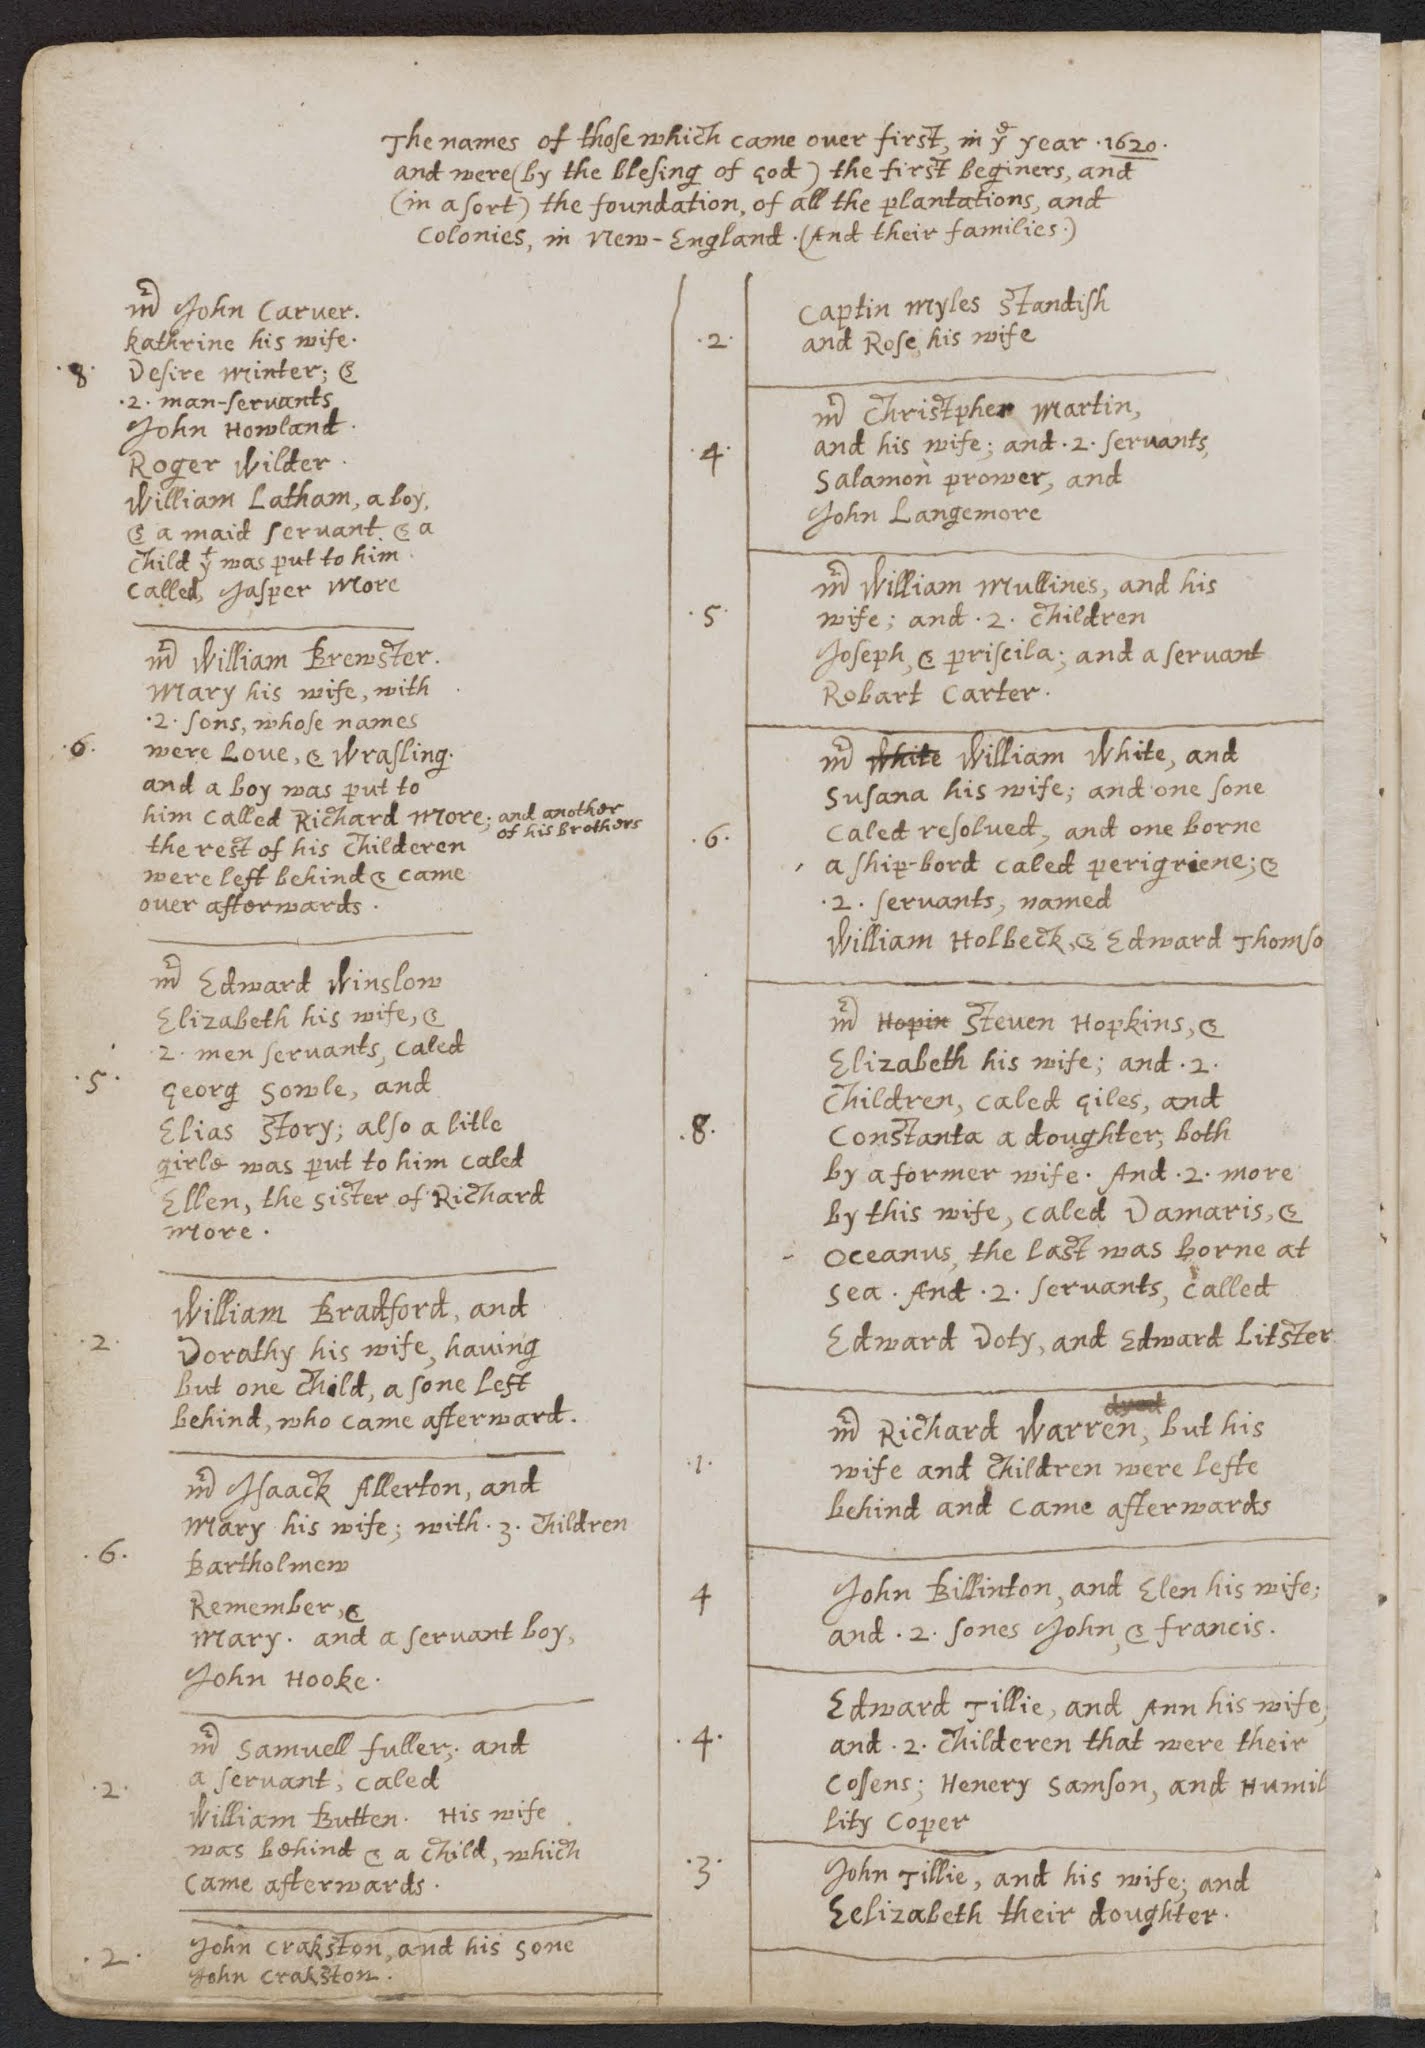 The names of those which came over first, in yᵉ year .1620.
and were (by the blesing of god) the first beginers, and
(in a sort) the foundation, of all the plantations, and
Colonies, in New-England. (And their families.)
.8.
mr John Carver.
kathrine his wife.
Desire Minter; &
.2. man-servants
John Howland.
Roger Wilder.
William Latham, a boy,
& a maid servant. & a
child yt was put to him
called, Jasper More
.6.
mr William Brewster.
Mary his wife, with
.2. sons, whose names
were Love, & Wrasling.
and a boy was put to
him called Richard More; and another
of his brothers
the rest of his childeren
were left behind & came
over afterwards.
.5.
mr Edward Winslow
Elizabeth his wife, &
.2. men servants, caled
Georg Sowle, and
Elias Story; also a litle
girle was put to him caled
Ellen, the sister of Richard
More.
.2.
William Bradford, and
Dorathy his wife, having
but one child, a sone left
behind, who came afterward.
.6.
mr Isaack Allerton, and
Mary his wife; with .3. children
Bartholmew
Remember, &
Mary. and a servant boy,
John Hooke.
.2.
mr Samuell fuller; and
a servant, caled
William Butten. His wife
was behind & a child, which
came afterwards.
.2.
John Crakston, and his sone
John Crakston.
.2.
Captin Myles Standish
and Rose, his wife
.4.
mr Christpher Martin,
and his wife; and .2. servants,
Salamon prower, and
John Langemore
.5.
mr William Mullines, and his
wife; and .2. children
Joseph, & priscila; and a servant
Robart Carter.
.6.
mr White William White, and
Susana his wife; and one sone
caled resolved, and one borne
a ship-bord caled perigriene; &
.2. servants, named
William Holbeck, & Edward Thomso
.8.
mr Hopin Steven Hopkins, &
Elizabeth his wife; and .2.
children, caled Giles, and
Constanta a doughter, both
by a former wife. And .2. more
by this wife, caled Damaris, &
Oceanus, the last was borne at
sea. And .2. servants, called
Edward Doty, and Edward Litster
.1.
dyed
mr Richard Warren, but his
wife and children were lefte
behind and came afterwards
4
John Billinton, and Elen his wife;
and .2. sones John, & francis.
.4.
Edward Tillie, and Ann his wife,
and .2. childeren that were their
cosens; Henery Samson, and Humil
lity Coper
.3.
John Tillie, and his wife; and
Eelizabeth their doughter.